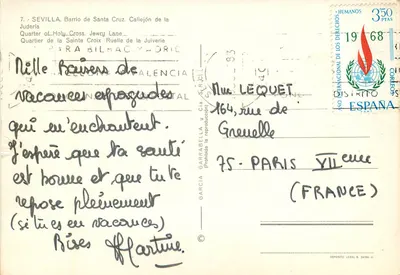 7.- SEVILLA. Barrio de Santa Cruz. Callejón de la
Judería
Quarter of Holy Cross. Jewry Lane
Quartier de la Sainte Croix. Ruelle de la Juiverie
PARA BILBAO Y DRID
VALENCIA
Mille Baisers de
vacances espagnoles
qui m'enchantent.
J'espère que ta santé
est bonne et que tu te
repose pleinement
(si tu es en vacances)
Bises Martine.
GARCIA GARRABELLA Y CIA
(Prohibida la reproducción)
AÑO INTERNACIONAL DE LOS DERECHOS HUMANOS
3,50
PTS
1968
ESPAÑA
DISTRITO
Mme LEQUET
164, rue de
Grenelle
75 - PARIS VIIème
(FRANCE)